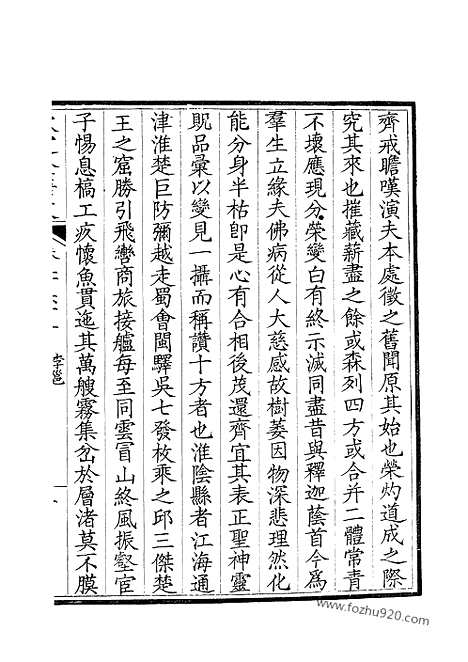 齊戒瞻嘆演夫本處徵之舊聞原其始也榮灼道成之際
究其來也摧藏薪盡之餘或森列四方或合并二體常青
不壞應現分榮變白有終示滅同盡昔與釋迦蔭首今爲
羣生立緣夫佛病從人大慈感故樹萎因物深悲理然化
能分身半枯卽是心有合相後茂還齊宜其表正聖神靈
貺品彙以變見一攝而稱讚十方者也淮陰縣者江海通
津淮楚巨防彌越走蜀會閩驛吳七發枚乘之邱三傑楚
王之窟勝引飛轡商旅接艫每至同雲冒山終風振壑宦
子惕息槁工疚懷魚貫迤其萬艘霧集岔於層渚莫不膜
李邕
www.fozhu920.com